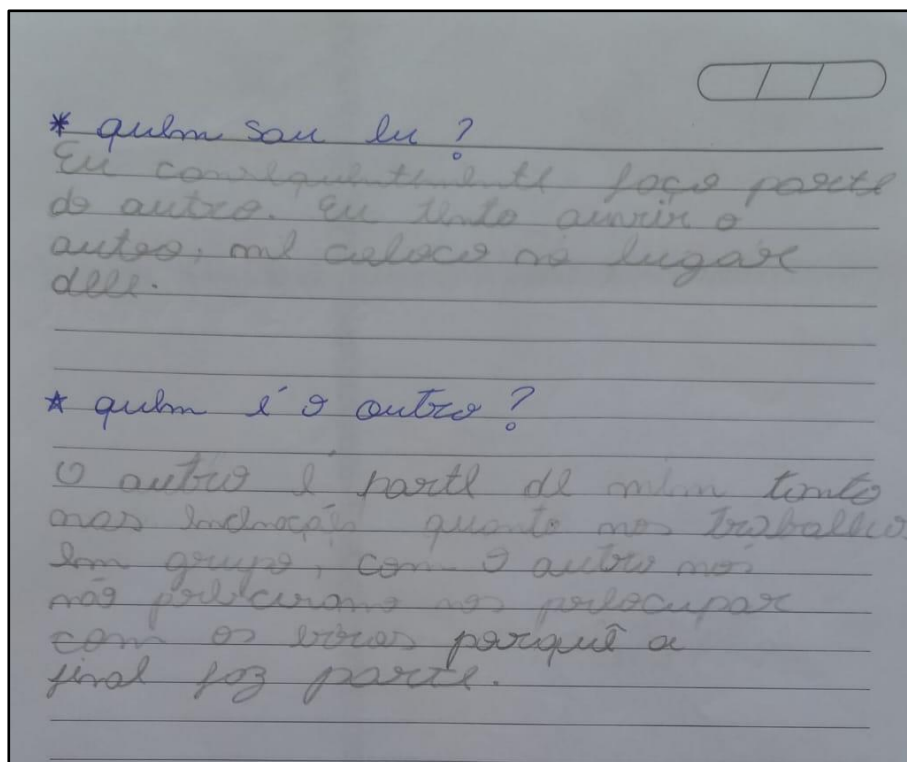 * quem sou eu ?
Eu consequentemente faço parte
do outro. Eu tento ouvrir o
outro, me coloco no lugar
dele.
* quem é o outro ?
O outro é parte de mim tanto
nas quanto nos trabalhos
em grupo, com o outro nós
não precisamos nos preocupar
com os erros porquê a
final faz parte.